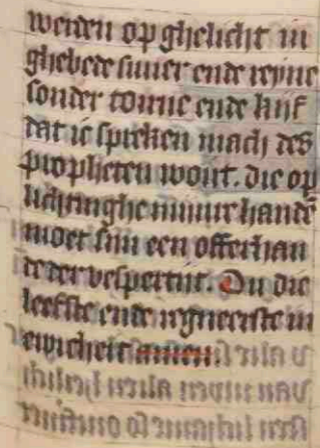 werden op ghelicht in
ghebede suuer ende reyne
sonder torne ende kijf
dat ic spreken mach des
propheten wort. die op
lichtinghe mijnre handē
moet sijn een offerhan
de der vespertijt. Du die
leefste ende regneerste in
ewicheit amen.